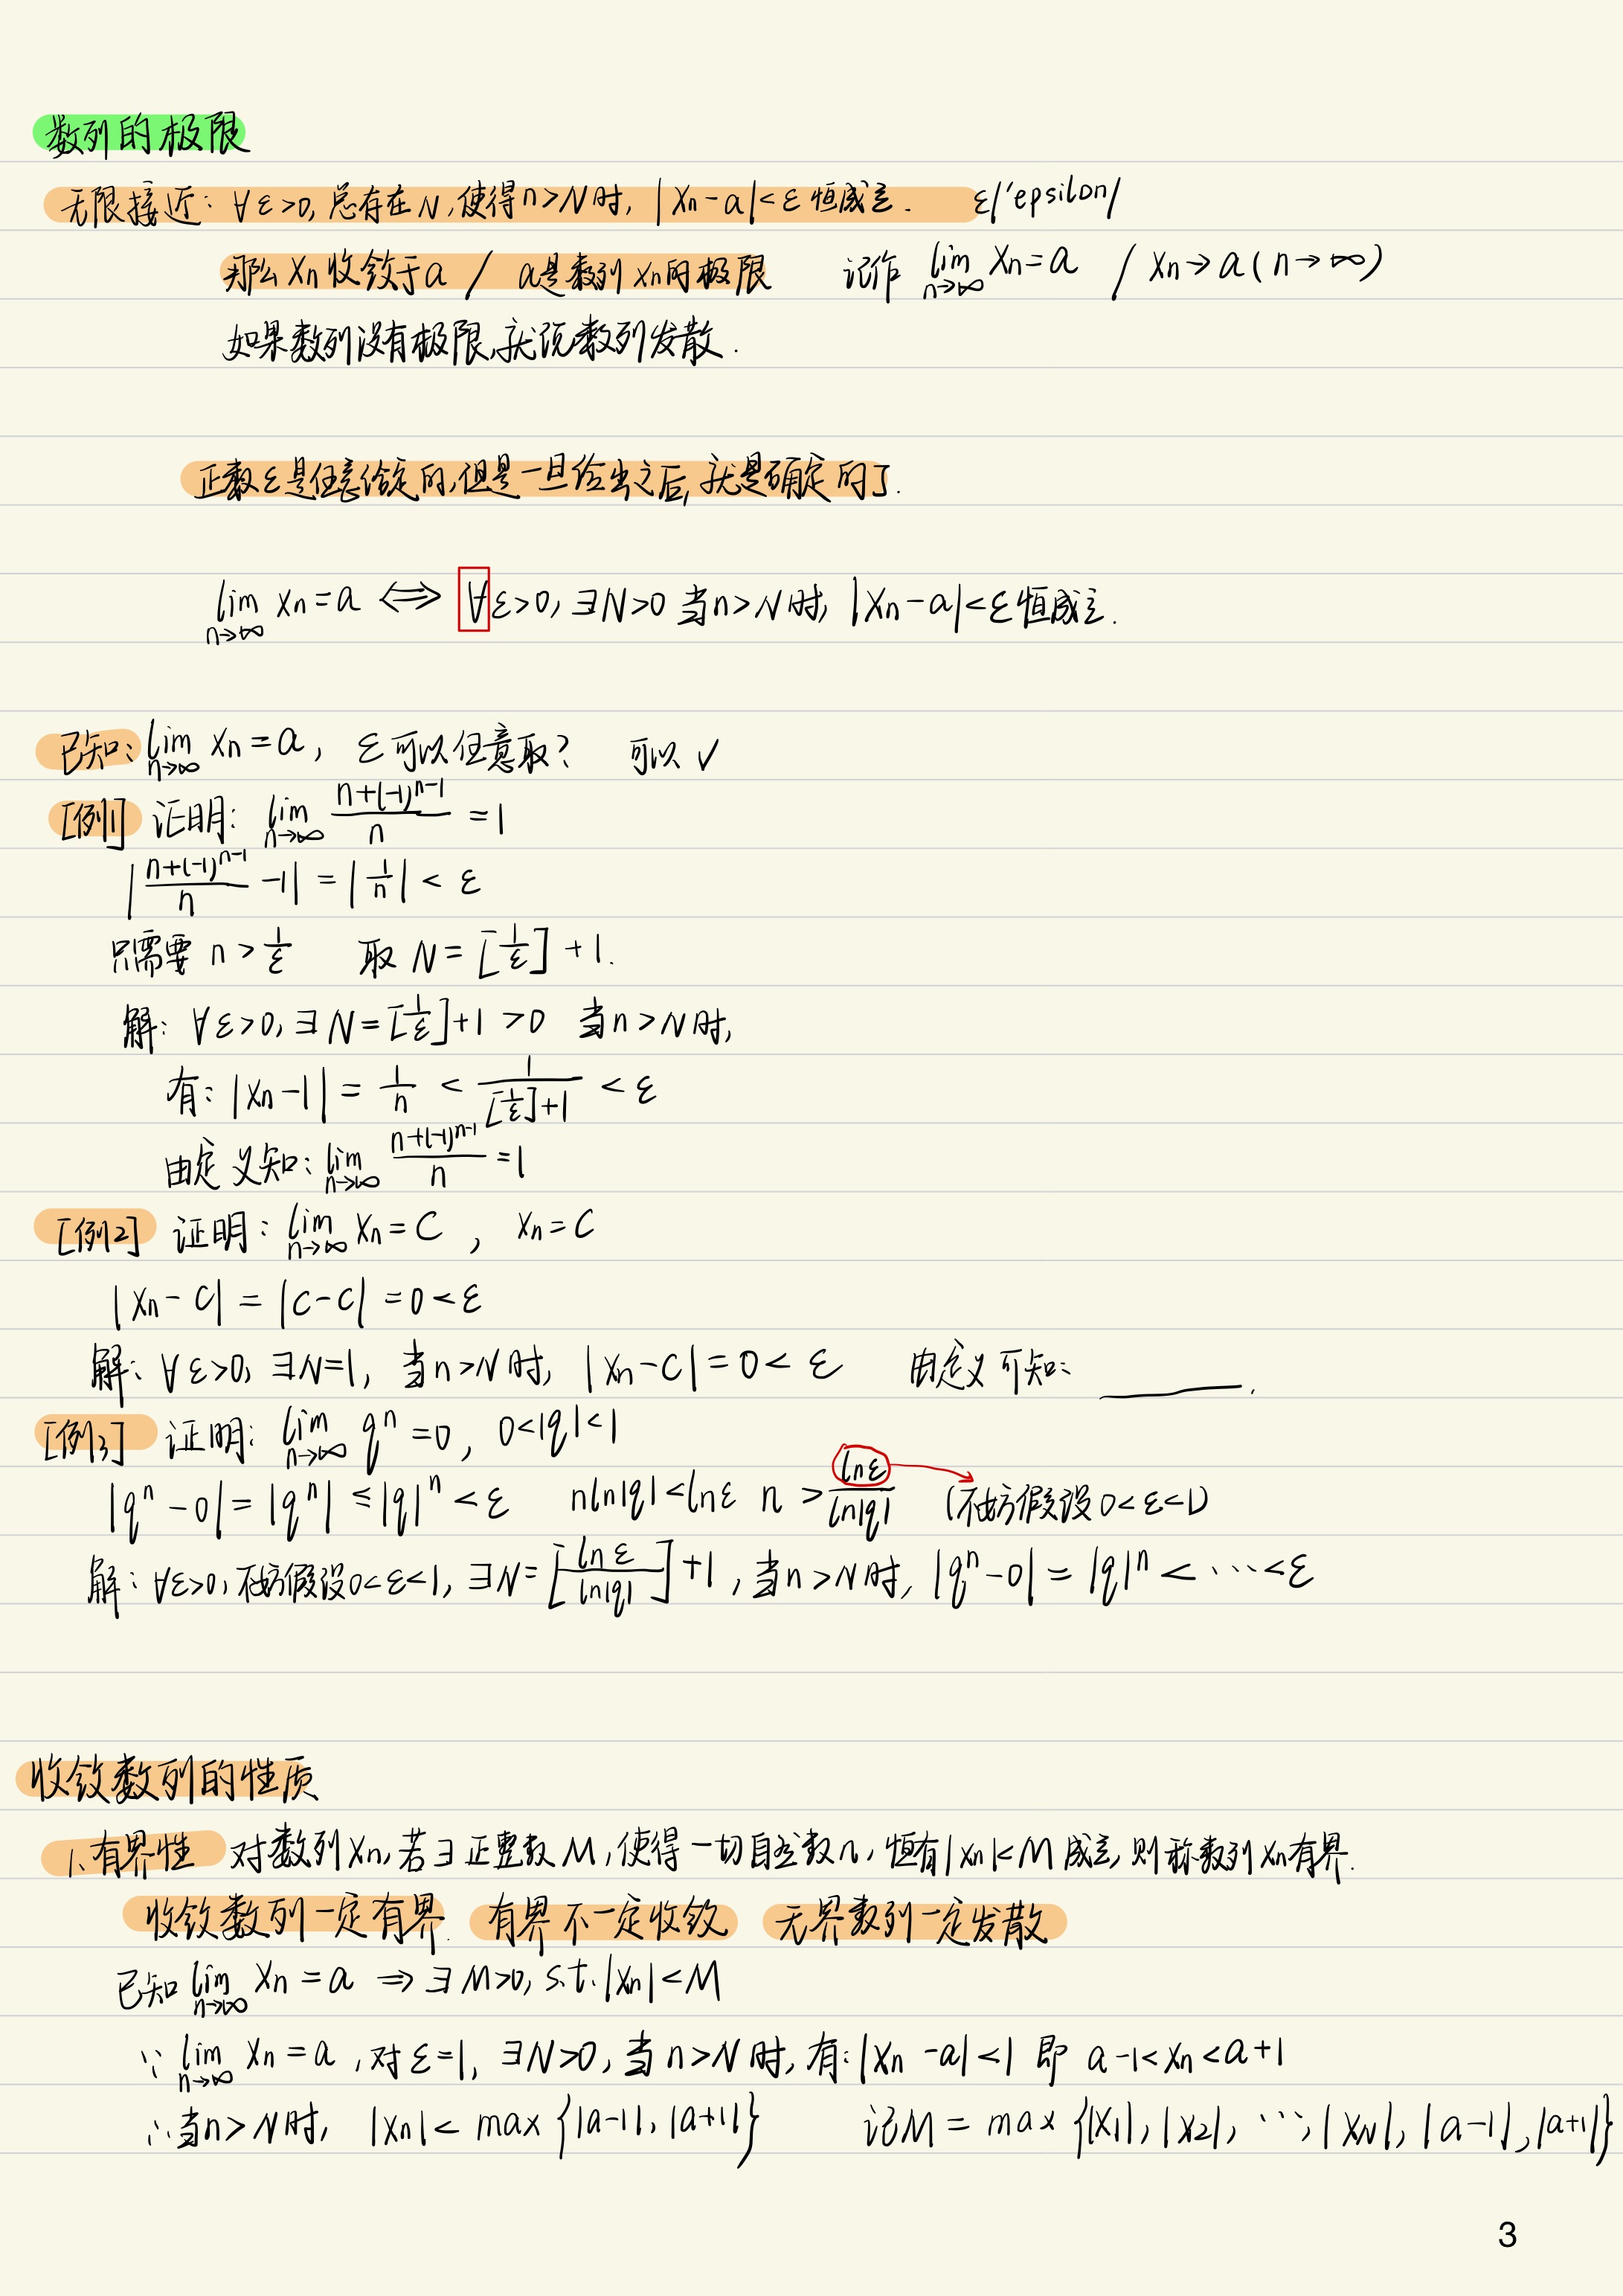 数列的极限
无限接近: ∀ε>0, 总存在N, 使得n>N时, |xn-a|<ε 恒成立. ε/'epsilon/
那么 xn 收敛于a / a是数列 xn的极限 记作 lim n→∞ xn=a / xn→a(n→∞)
如果数列没有极限,就说数列发散.
正数ε是任意给定的,但是一旦给出之后,就是确定的了.
lim n→∞ xn=a ⟺ ∀ε>0, ∃N>0 当n>N时, |xn-a|<ε恒成立.
已知: lim n→∞ xn=a, ε可以任意取? 可以 ✓
[例1] 证明: lim n→∞ (n+(-1)^(n-1))/n =1
|(n+(-1)^(n-1))/n -1| = |1/n| < ε
只需要 n>1/ε 取 N=[1/ε]+1.
解: ∀ε>0, ∃N=[1/ε]+1>0 当n>N时,
有: |xn-1| = 1/n < 1/([1/ε]+1) < ε
由定义知: lim n→∞ (n+(-1)^(n-1))/n =1
[例2] 证明: lim n→∞ xn=C , xn=C
|xn-C| = |C-C| =0<ε
解: ∀ε>0, ∃N=1, 当n>N时, |xn-C|=0<ε 由定义可知: ______.
[例3] 证明: lim n→∞ q^n=0, 0<|q|<1
|q^n-0|=|q^n| ≤|q|^n<ε nln|q|<lnε n>lnε/ln|q| (不妨假设0<ε<1)
解: ∀ε>0, 不妨假设0<ε<1, ∃N=[lnε/ln|q|]+1, 当n>N时, |q^n-0|=|q|^n<···<ε
收敛数列的性质
1、有界性 对数列xn,若∃正整数M,使得一切自然数n,恒有|xn|<M成立,则称数列xn有界.
收敛数列一定有界. 有界不一定收敛 无界数列一定发散
已知 lim n→∞ xn=a ⇒ ∃M>0, s.t. |xn|<M
∵ lim n→∞ xn=a , 对ε=1, ∃N>0, 当n>N时, 有: |xn-a|<1 即 a-1<xn<a+1
∴当n>N时, |xn|< max{|a-1|, |a+1|} 记M = max{|x1|, |x2|, ···, |xN|, |a-1|, |a+1|}
3